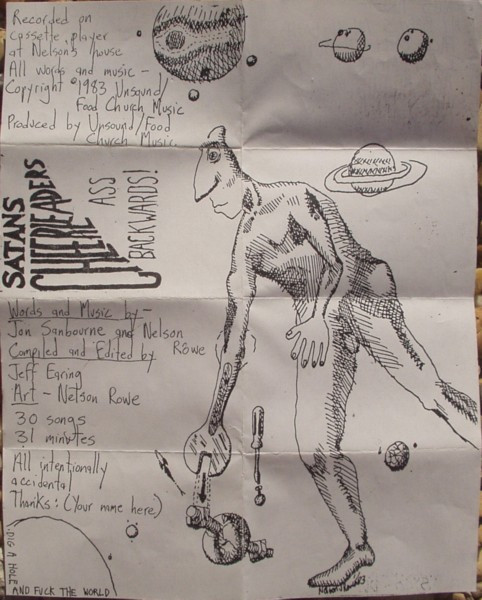 Recorded on
cassette player
at Nelson's house
All words and music -
Copyright ©1983 Unsound/
Food Church Music
Produced by Unsound/Food
Church Music.
SATANS
CHEERLEADERS
ASS
BACKWARDS!
Words and Music by -
Jon Sanbourne and Nelson
Rowe
Compiled and Edited by
Jeff Earing
Art - Nelson Rowe
30 songs
31 minutes
All intentionally
accidental
Thanks: (Your name here)
DIG A HOLE
AND FUCK THE WORLD